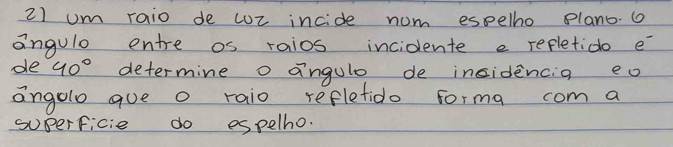 2) um raio de luz incide num espelho plano. O
ângulo entre os raios incidente e refletido é
de 40° determine o ângulo de incidência e o
ângulo que o raio refletido forma com a
superfície do espelho.